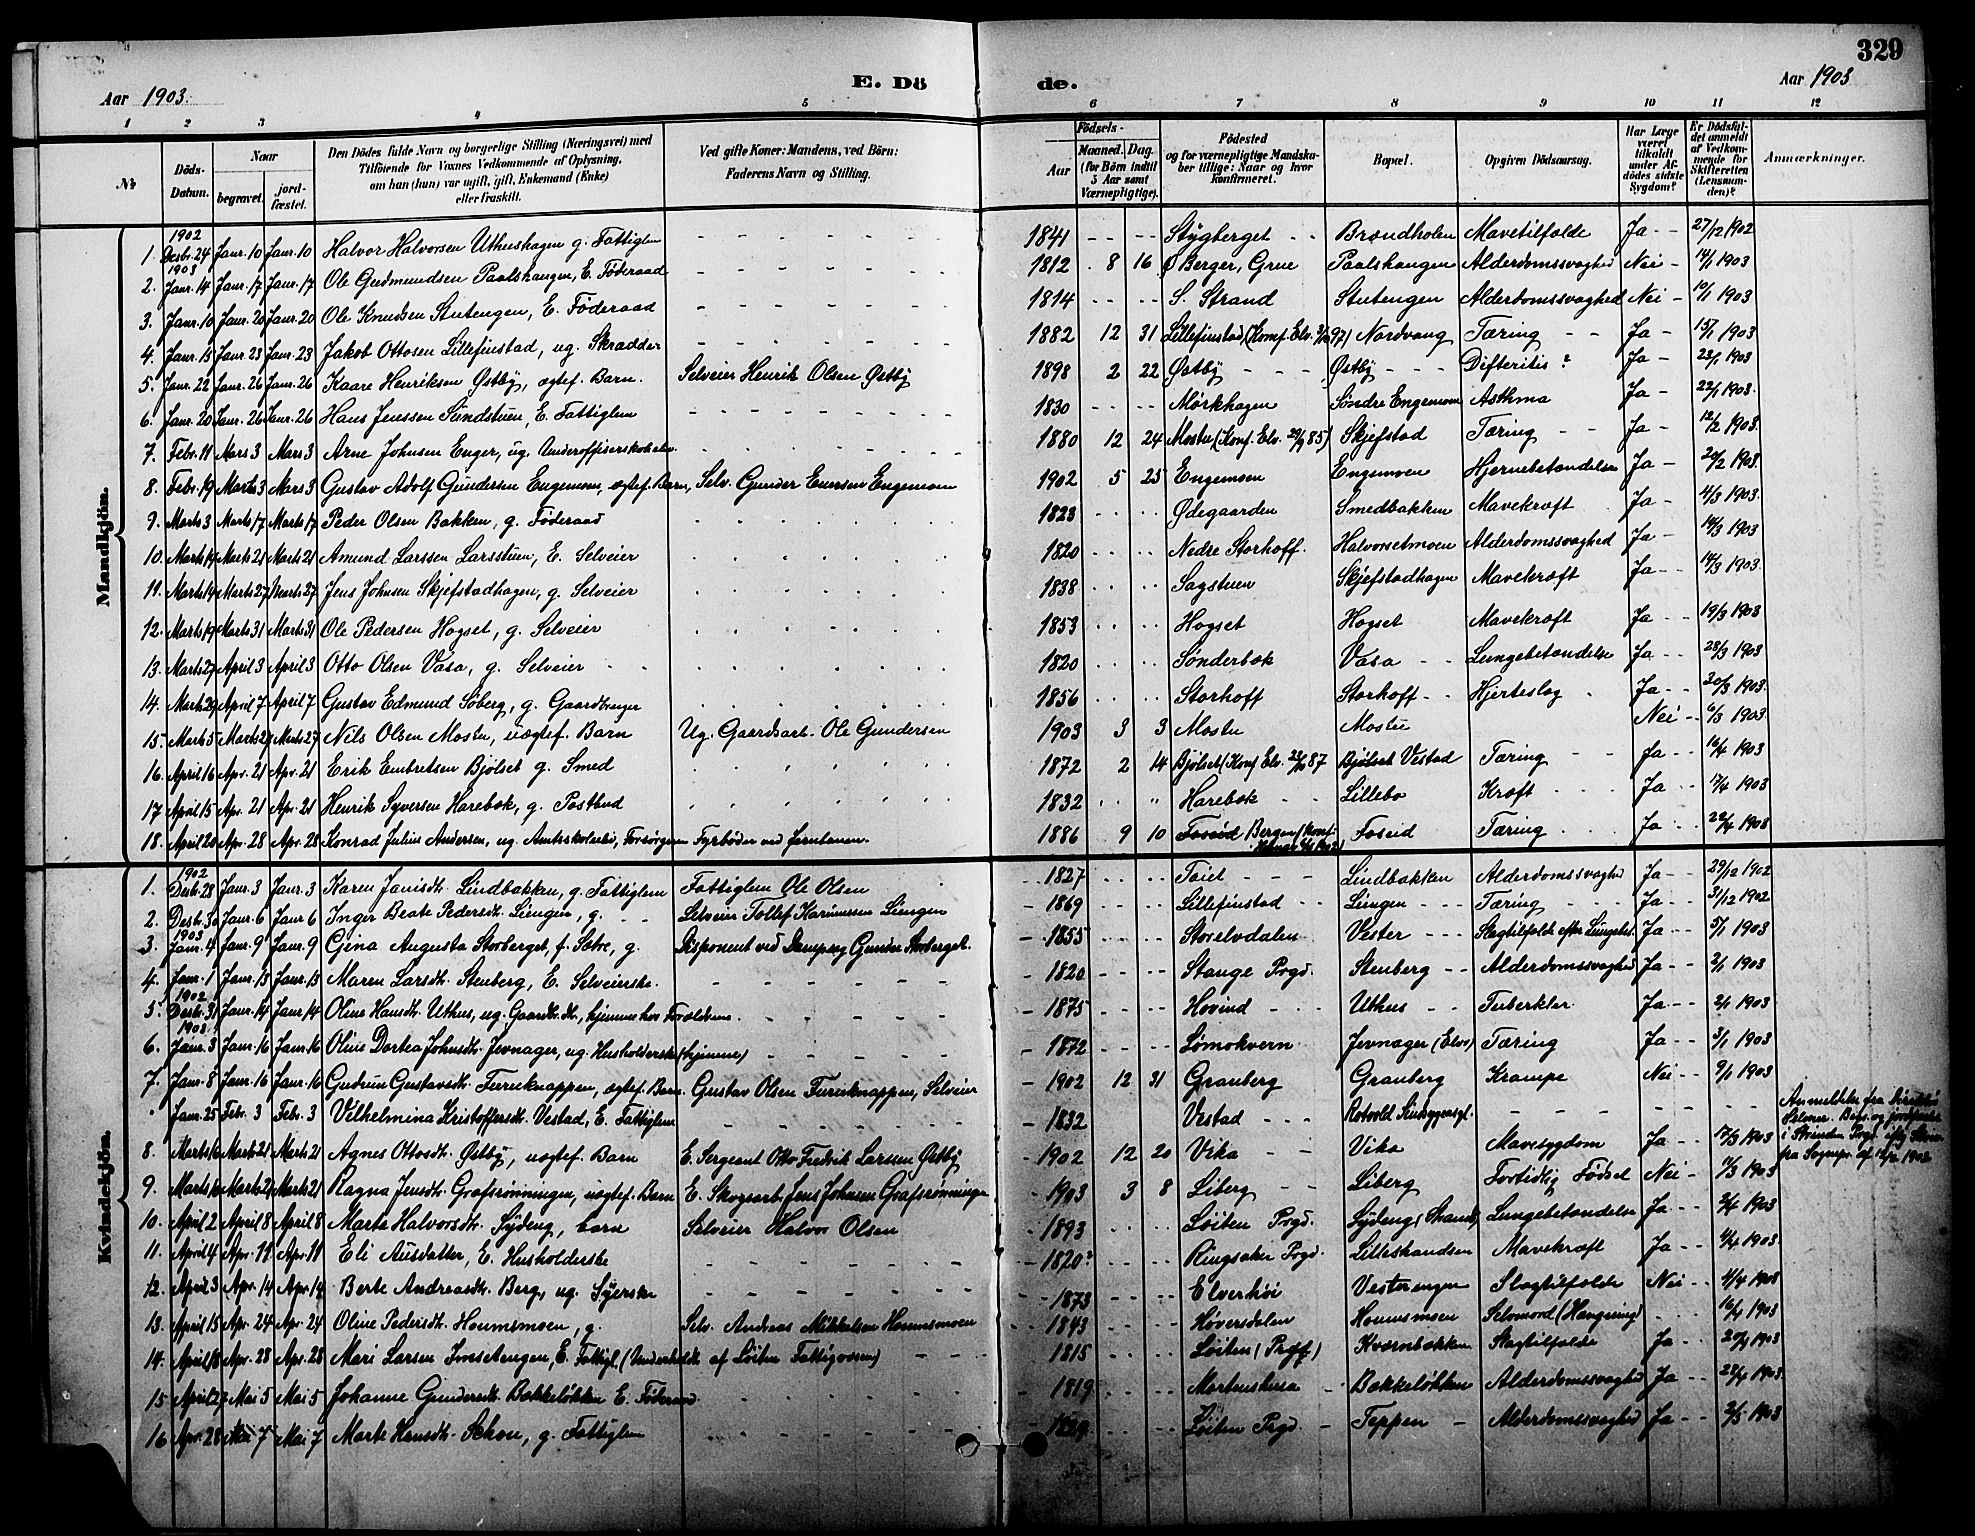 329
E. Dö de.
Aar 1903.
Aar 1903
1 2 3 4 5 6 7 8 9 10 11 12
No
Döds-Datum.
Naar
begravet.
jord-fæstet.
Den Dödes fulde Navn og borgerlige Stilling (Næringsvei) med
Tilföiende for Voxnes Vedkommende af Oplysning,
om han (hun) var ugift, gift, Enkemand (Enke)
eller fraskilt.
Ved gifte Koner: Mandens, ved Börn:
Faderens Navn og Stilling.
Födsels-
Aar
Maaned. Dag.
(for Börn indtil
5 Aar samt
Værnepligtige).
Födested
og for værnepligtige Mandska-
ber tillige: Naar og hvor
konfirmeret.
Bopæl.
Opgiven Dödsaarsag.
Har Læge
været
tilkaldt
under Af-
dödes sidste
Sygdom?
Er Dödsfal-
det anmeldt
af Vedkom-
mende for
Skifteretten
(Lensman-
den)?
Anmærkninger.
Mandkjön.
1. 1902 Desbr. 24 Janr. 10 Janr. 10 Halvor Halvorsen Uthushagen g. Fattiglem 1841 Stygberget Brændholen Mavetilfælde Ja 27/12 1902
2. 1903 Janr. 14 Janr. 17 Janr. 17 Ole Gudmundsen Paalshaugen, E. Föderaad 1812 8 16 Ø Berger, Grue Paalshaugen Alderdomssvaghed Nei 14/1 1903
3. Janr. 10 Janr. 20 Janr. 20 Ole Knudsen Stutengen, E. Föderaad 1814 S. Strand Stutengen Alderdomssvaghed Nei 10/1 1903
4. Janr. 15 Janr. 23 Janr. 23 Jakob Ottosen Lillefinstad, ug. Skrædder 1882 12 31 Lillefinstad (Konf. Elv. 97) Nordvang Tæring Ja 15/1 1903
5. Janr. 22 Janr. 26 Janr. 26 Kaare Henriksen Østby, ægtef. Barn. Selveier Henrik Olsen Østby 1898 2 22 Østby Østby Difteritis? Ja 23/1 1903
6. Janr. 20 Janr. 26 Janr. 26 Hans Jenssen Sundstuen, E. Fattiglem 1830 Mörkhagen Söndre Engemoen Asthma Ja 22/1 1903.
7. Febr. 11 Mars 3 Mars 3 Arne Johnsen Enger, ug. Underoffiserskoleelev 1880 12 24 Mostu (Konf. Elv. 85) Skjefstad Tæring Ja 12/2 1903.
8. Febr. 19 Marts 3 Mars 3 Gustav Adolf Gundersen Engemoen, ægtef. Barn, Selv. Gunder Evensen Engemoen 1902 5 25 Engemoen Engemoen Hjernebetændelse Ja 20/2 1903.
9. Marts 3 Marts 17 Marts 17 Peder Olsen Bakken, g. Föderaad 1823 Ødegaarden Smedbakken Mavekræft Ja 4/3 1903.
10. Marts 14 Marts 21 Marts 21 Amund Larssen Larsstuen, E. Selveier 1820 Nedre Storhoff. Halvorsetmoen Alderdomssvaghed Ja 14/3 1903
11. Marts 14 Marts 27 Marts 27 Jens Johnsen Skjefstadhagen, g. Selveier 1838 Sagstuen Skjefstadhagen Mavekræft Ja 14/3 1903.
12. Marts 19 Marts 31 Marts 31 Ole Pedersen Hogset, g. Selveier 1853 Hogset Hogset Mavekræft Ja 19/3 1903
13. Marts 27 April 3 April 3 Otto Olsen Vasa, g. Selveier 1820 Sönderbæk Vasa Lungebetændelse Ja 28/3 1903
14. Marts 29 April 7 April 7 Gustav Edmund Söberg, g. Gaardbruger 1856 Storhoff Storhoff Hjerteslag Ja 30/3 1903.
15. Marts 5 Marts 27 Marts 27 Nils Olsen Mostu, uægtef. Barn Ug. Gaardsarb. Ole Gundersen 1903 3 3 Mostu Mostu Nei 6/3 1903.
16. April 16 Apr. 21 Apr. 21 Erik Embretsen Bjölset g. Smed 1872 2 14 Bjölset (Konf Elv. 87 Bjölset Vestad Tæring Ja 16/4 1903
17. April 15 Apr. 21 Apr. 21 Henrik Syversen Harebæk, g. Postbud 1832 Harebæk Lillebo Kræft Ja 17/4 1903
18. April 20 Apr. 28 Apr. 28 Konrad Julius Andersen, ug. Amtsskoleelev, Forsörgeren Fyrböder ved Jernbanen 1886 9 10 Foseid Bergen (Konf. Hamar 1902) Foseid Tæring Ja 22/4 1903
Kvindekjön.
1. 1902 Desbr. 28 Janr. 3 Janr. 3 Karen Janisdtr. Lindbakken, g. Fattiglem Fattiglem Ole Olsen 1827 Taiet Lindbakken Alderdomssvaghed Ja 29/12 1902
2. Desbr. 30 Janr. 6 Janr. 6 Inger Beate Pedersdtr. Lungen, g. Selveier Tollef Larsen Lungen 1869 Lillefinstad Lungen Tæring Ja 31/12 1902
3. 1903 Janr. 4 Janr. 9 Janr. 9 Gina Augusta Storberget, f. Sætre, g. Disponent ved Dampsag Gunder Storberget. 1855 Storelvdalen Vester Slagtilfælde efter Lungebet. Ja 5/1 1903
4. Janr. 1 Janr. 13 Janr. 13 Maren Larsdtr. Stenberg, E. Selveierske. 1820 Stange Prgd. Stenberg Alderdomssvaghed Ja 2/1 1903
5. 1902 Desbr. 31 Janr. 14 Janr. 14 Oline Hansdtr. Uthus, ug. Gaardbr. dtr., hjemme hos Forældrene. 1875 Hovind Uthus Tuberkler Ja 2/1 1903
6. 1903. Janr. 3 Janr. 16 Janr. 16 Oline Dortea Johnsdtr. Jevnager, ug. Husholderske (hjemme) 1872 Lömokvern Jevnager (Elv.) Tæring Ja 3/1 1903
7. Janr. 8 Janr. 16 Janr. 16 Gudrun Gustavsdtr. Furuknappen, ægtef. Barn. Gustav Olsen Furuknappen, Selveier 1902 12 31 Granberg Granberg Krampe Nei 9/1 1903
Janr. 25 Febr. 3 Febr. 3 Vilhelmina Kristoffersdtr. Vestad, E. Fattiglem 1832 Vestad Rotvold Sindssygeasyl. Anmeldelse fra i Strinden Prgd. fra Sognepr. af 1902
8. Marts 16 Marts 21 Marts 21 Agnes Ottosdtr. Østby, uægtef. Barn E. Sergeant Otto Fredrik Larssen Østby 1902 12 20 Vika Vika Mavesygdom Ja 17/3 1903
9. Marts Marts 21 Marts 21 Ragna Jensdtr. Grafsrönningen, uægtef. Barn E. Skogsarb. Jens Johnsen Grafsrönningen 1903 3 8 Liberg Liberg Fortidlig Födsel Nei 11/3 1903
10. April 2 April 8 April 8 Marte Halvorsdtr. Syljeng, barn Selveier Halvor Olsen 1893 Löiten Prgd. Lungebetændelse Ja 2/4 1903
11. April 4 Apr. 11 Apr. 11 Eli Ausdatter, E. Husholderske 1820? Ringsaker Prgd. Lilleskandsen Mavekræft Ja 4/4 1903.
12. April 3 Apr. 14 Apr. 14 Berte Andreasdtr. Berg, ug. Syerske 1873 Elverhöi Vesterengen Slagtilfælde Nei 4/4 1903
13. April 15 Apr. 24 Apr. 24 Oline Pedersdtr. Hommsmoen, g. Selv. Andreas Mikkelsen Hommsmoen 1843 Höversdalen Hommsmoen Selvmord (Hængning) 16/4 1903
14. April 18 Apr. 28 Apr. 28 Mari Larsen Imsetengen, E. Fattigl. (Underholdt af Löiten Fattigvæsen) 1815 Löiten (Prgd) Kværnbakken Slagtilfælde Ja 20/4 1903
15 April 27 Mai 5 Mai 5 Johanne Gundersdtr. Bakkelökken E. Föderaad 1819 Mortenshusa Bakkelökken Alderdomssvaghed Ja 28/4 1903
16 Apr. 28 Mai 7 Mai 7 Marte Hansdtr. Schou, g. Fattiglem Löiten Prgd Teppen Alderdomssvaghed Ja 2/5 1903